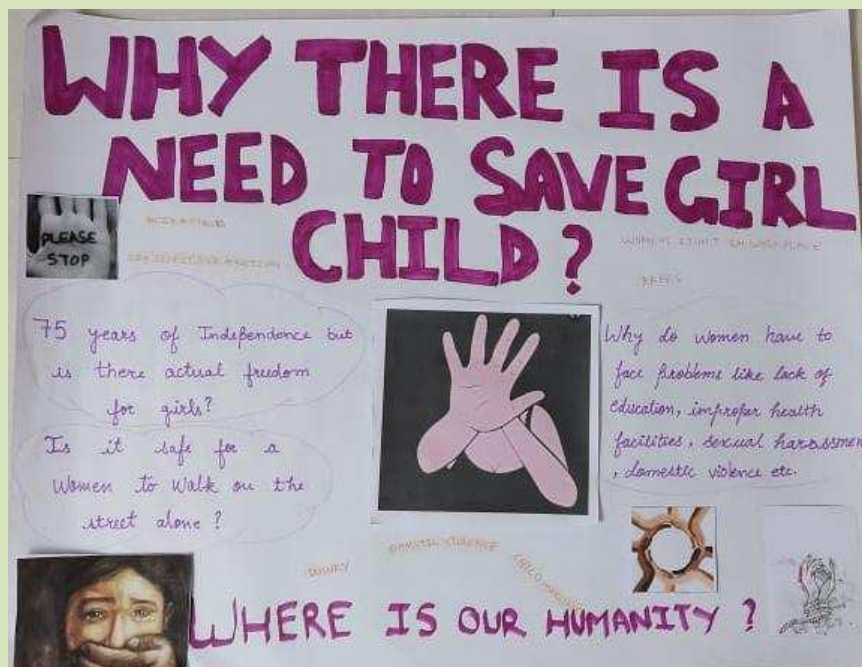 WHY THERE IS A
NEED TO SAVE GIRL
CHILD?
PLEASE
STOP
75 years of Independence but
is there actual freedom
for girls?
Is it safe for a
Women to Walk on the
street alone?
Why do women have to
face problems like lack of
education, improper health
facilities, sexual harassmen
, domestic violence etc.
DOWRY
WHERE IS OUR HUMANITY ?